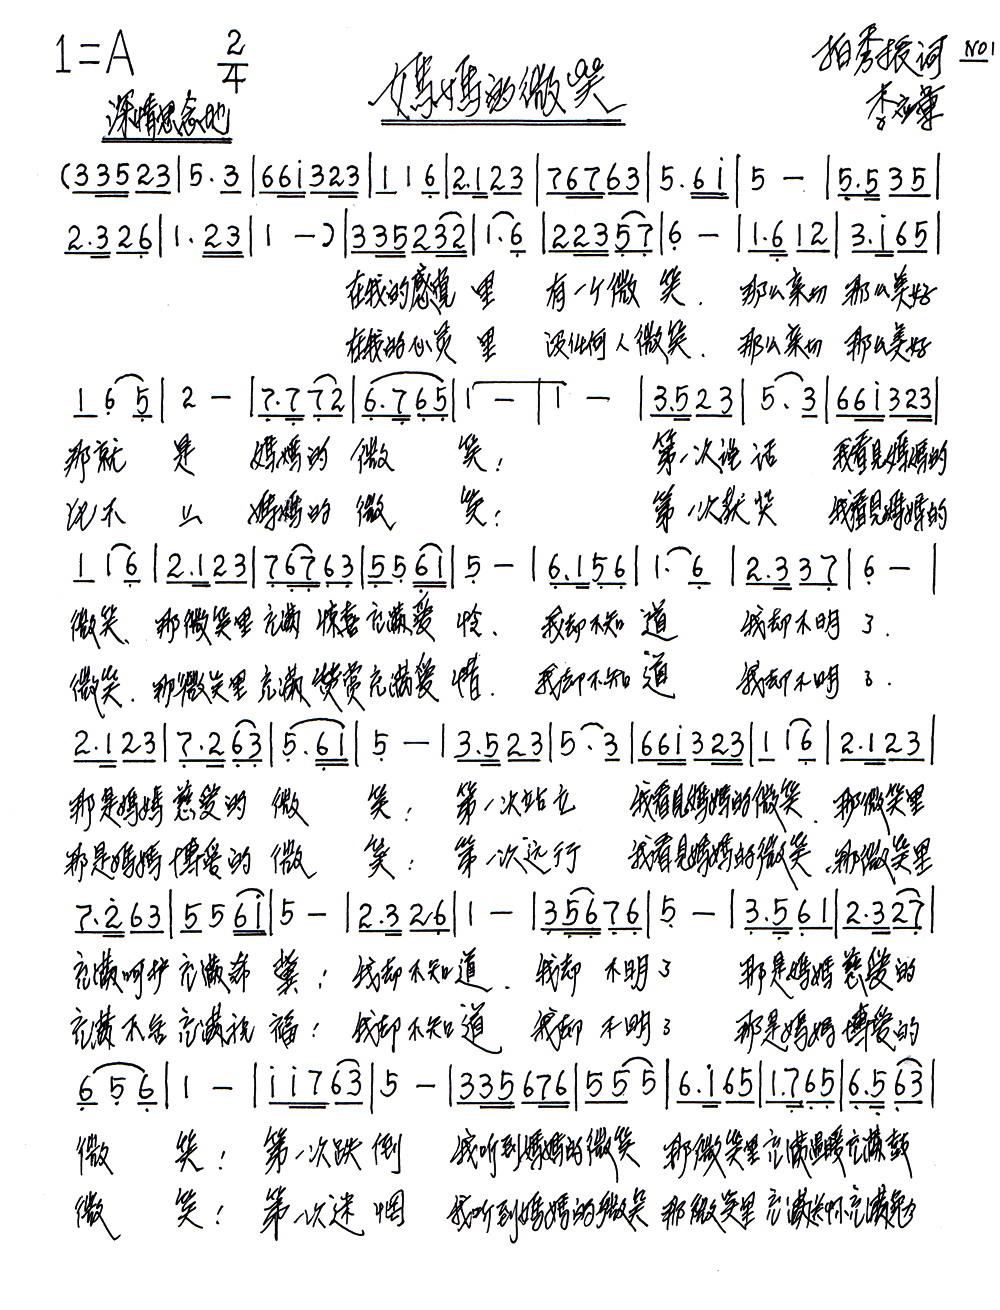 1=A 2/4 媽媽的微笑 柏秀振词 NO1
深情思念地 李
(33523|5.3|66i323|116|2.123|76763|5.6i|5 -|5.535|
2.326|1.23|1 -)|335232|1.6|22357|6 -|1.612|3.i65|
在我的感觉里 有一个微笑. 那么亲切 那么美好
在我的心灵里 没任何人微笑. 那么亲切 那么美好
165|2 -|7.772|6.765|1 -|1 -|3.523|5.3|66i323|
那就是 媽媽的微笑; 第一次说话 我看见媽媽的
媽媽的微笑; 第一次获奖 我看见媽媽的
116|2.123|76763|556i|5 -|6.156|1.6|2.337|6 -|
微笑. 那微笑里充满惊喜充满爱怜. 我却不知道 我却不明了.
微笑. 那微笑里充满赞赏充满爱惜. 我却不知道 我却不明了.
2.123|7.263|5.6i|5 -|3.523|5.3|66i323|116|2.123|
那是媽媽慈爱的微笑; 第一次站立 我看见媽媽的微笑. 那微笑里
那是媽媽博爱的微笑; 第一次远行 我看见媽媽的微笑. 那微笑里
7.263|556i|5 -|2.326|1 -|35676|5 -|3.561|2.327|
充满呵护充满希冀; 我却不知道. 我却不明了 那是媽媽慈爱的
充满不舍充满祝福; 我却不知道 我却不明了 那是媽媽博爱的
656|1 -|ii763|5 -|335676|555|6.i65|1.765|6.563|
微笑; 第一次跌倒 我听到媽媽的微笑 那微笑里充满温暖充满鼓
微笑; 第一次迷惘 我听到媽媽的微笑 那微笑里充满关怀充满勉